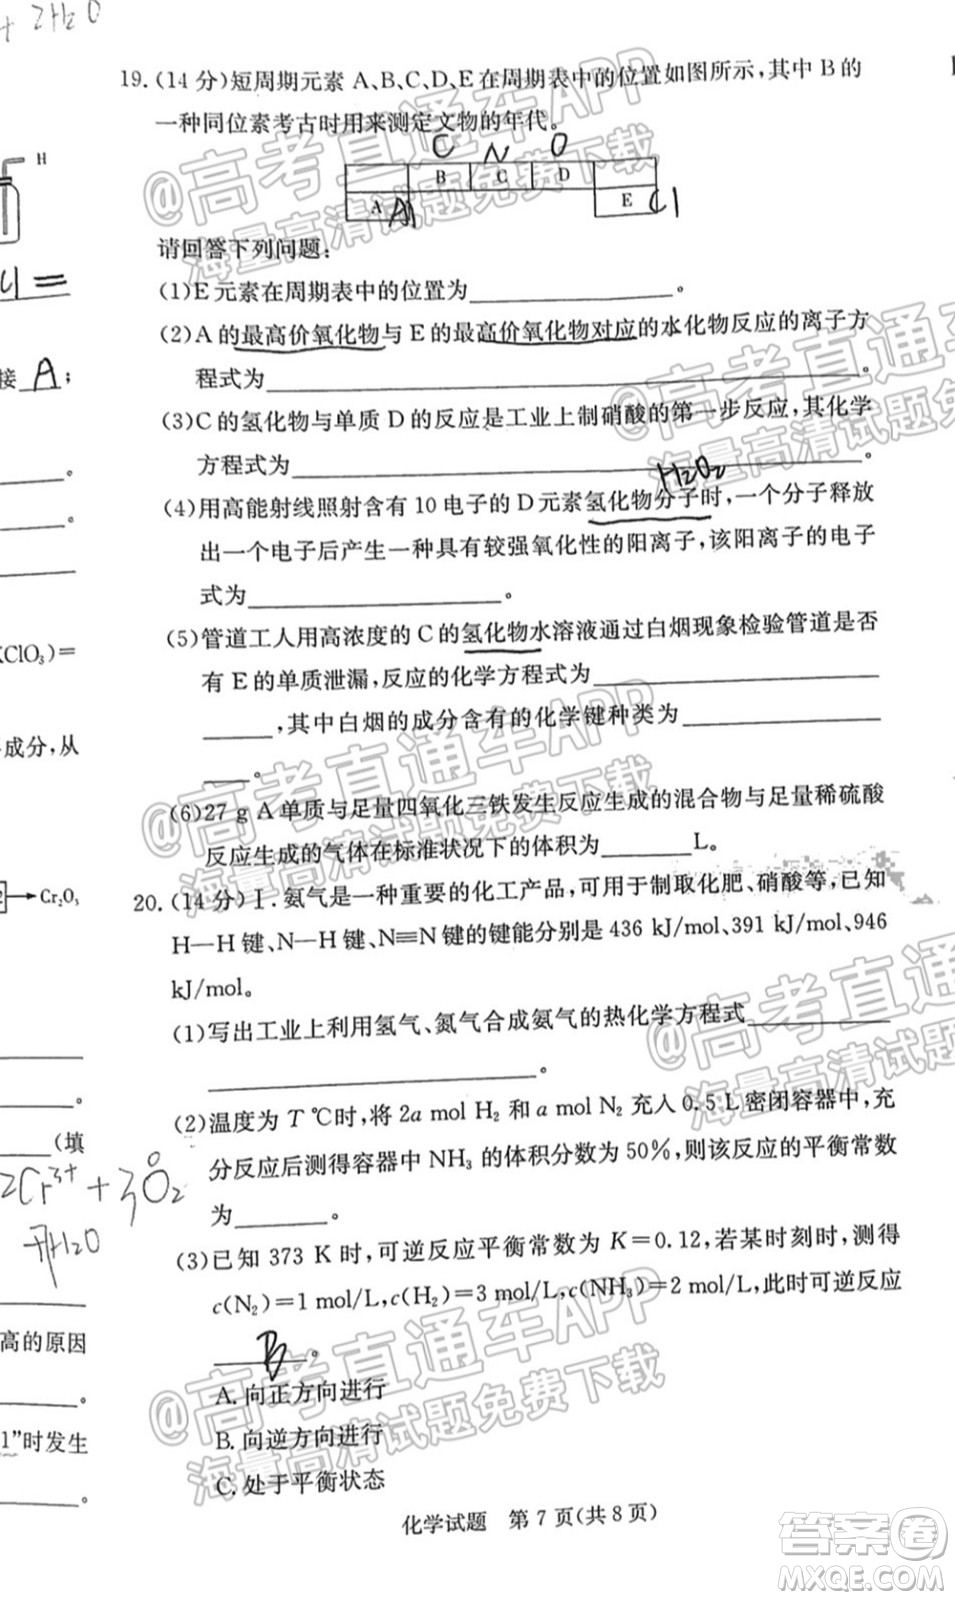 + 2H₂O
19.(14 分)短周期元素 A、B、C、D、E 在周期表中的位置如图所示,其中 B 的
一种同位素考古时用来测定文物的年代。
H
C N O
B C D
A Al E Cl
请回答下列问题:
(1)E 元素在周期表中的位置为____________。
(2)A 的最高价氧化物与 E 的最高价氧化物对应的水化物反应的离子方
程式为____________。
接 A ;
(3)C 的氢化物与单质 D 的反应是工业上制硝酸的第一步反应,其化学
方程式为____________。
H₂O₂
(4)用高能射线照射含有 10 电子的 D 元素氢化物分子时,一个分子释放
出一个电子后产生一种具有较强氧化性的阳离子,该阳离子的电子
式为____________。
(5)管道工人用高浓度的 C 的氢化物水溶液通过白烟现象检验管道是否
KClO₃)=
有 E 的单质泄漏,反应的化学方程式为____________
______,其中白烟的成分含有的化学键种类为____________
____。
成分,从
(6)27 g A 单质与足量四氧化三铁发生反应生成的混合物与足量稀硫酸
反应生成的气体在标准状况下的体积为________L。
→Cr₂O₃
20.(14 分)Ⅰ.氨气是一种重要的化工产品,可用于制取化肥、硝酸等,已知
H—H 键、N—H 键、N≡N 键的键能分别是 436 kJ/mol、391 kJ/mol、946
kJ/mol。
(1)写出工业上利用氢气、氮气合成氨气的热化学方程式____________
____________。
(2)温度为 T ℃时,将 2a mol H₂ 和 a mol N₂ 充入 0.5 L 密闭容器中,充
(填
分反应后测得容器中 NH₃ 的体积分数为 50%,则该反应的平衡常数
2Cr³⁺ + 3O₂
为________。
(3)已知 373 K 时,可逆反应平衡常数为 K=0.12,若某时刻时,测得
c(N₂)=1 mol/L,c(H₂)=3 mol/L,c(NH₃)=2 mol/L,此时可逆反应
高的原因
B 。
A. 向正方向进行
1”时发生
B. 向逆方向进行
C. 处于平衡状态
化学试题 第 7 页(共 8 页)
@高考直通车APP
海量高清试题免费下载
答案圈
MXQE.COM